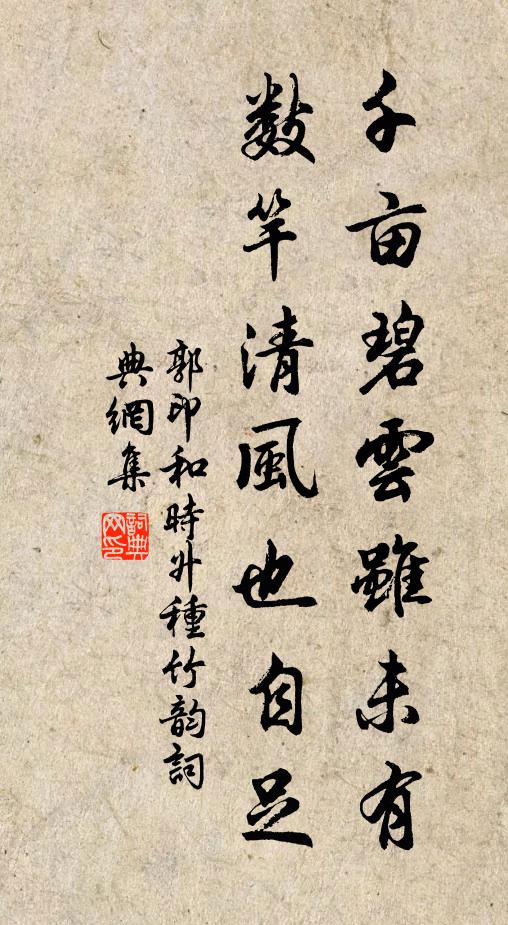 千亩碧雲雖未有
数竿清風也自足
郭印和時升種竹韵詞
典網集
詞典网印